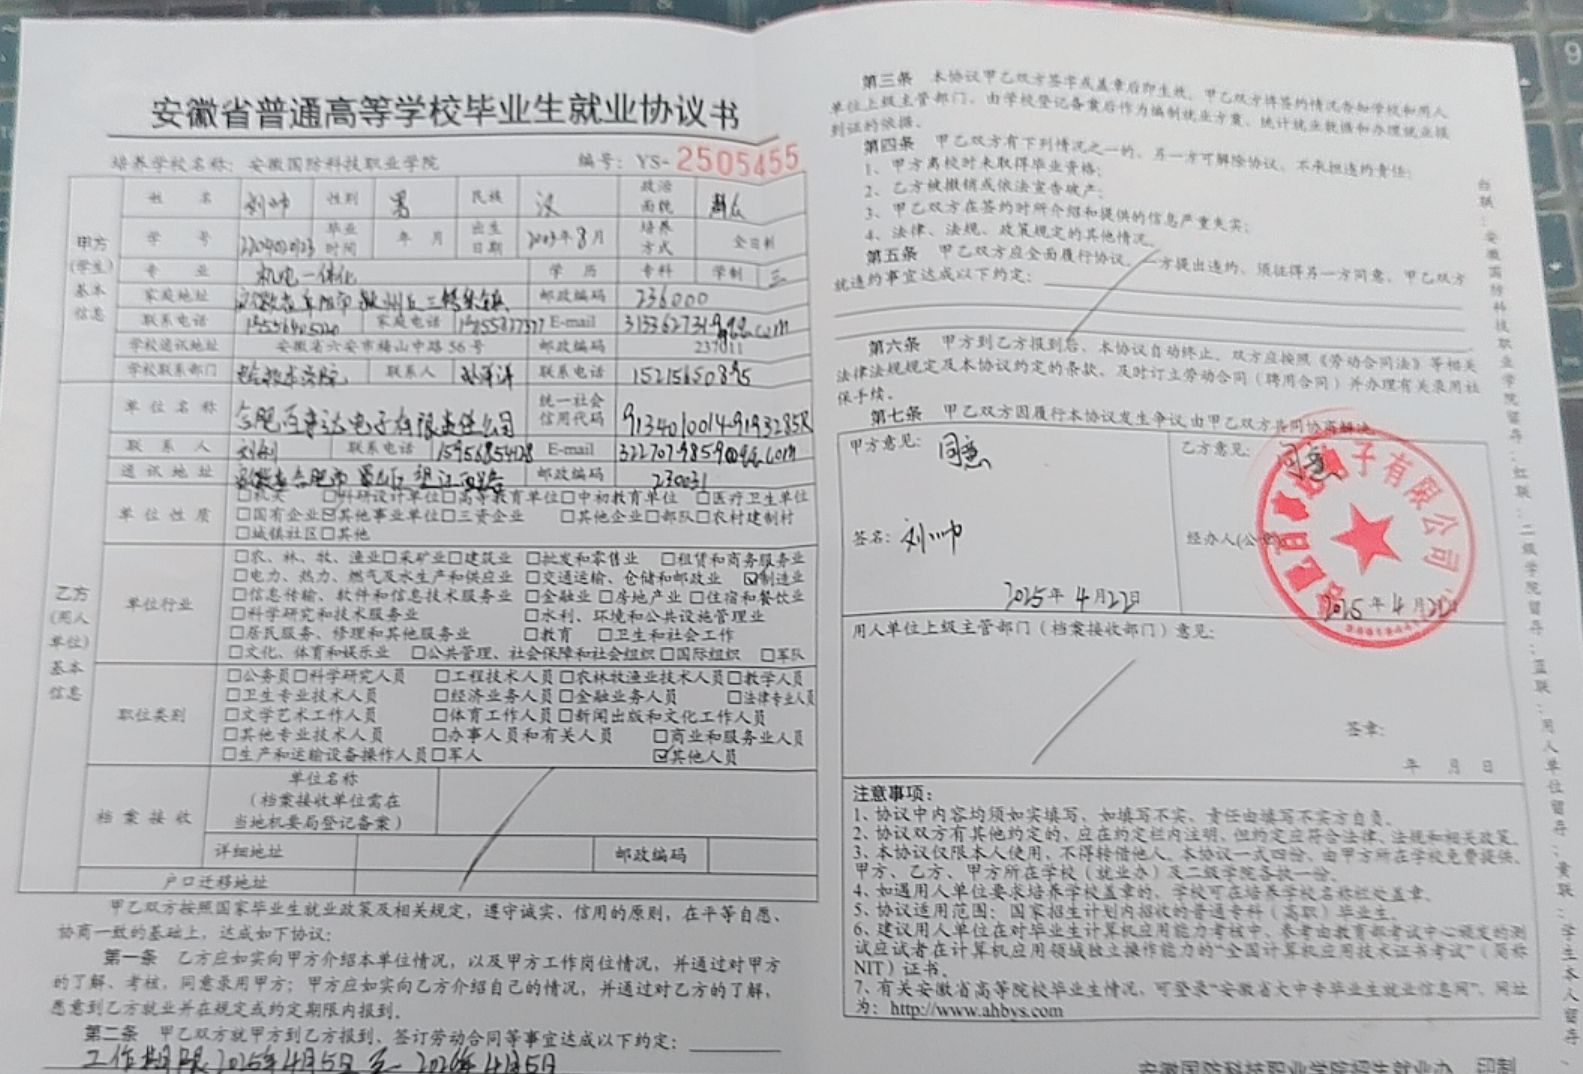 安徽省普通高等学校毕业生就业协议书
培养学校名称：安徽国防科技职业学院 编号：YS-2505455
甲方(学生)基本信息
姓 名 刘帅 性别 男 民族 汉 政治面貌 群众
学 号 毕业时间 年 月 出生日期 2003年8月 培养方式 全日制
专 业 机电一体化 学 历 专科 学制 三
家庭地址 安徽省阜阳市颍州区三塔集镇 邮政编码 236000
联系电话 家庭电话 E-mail
学校通讯地址 安徽省六安市梅山中路56号 邮政编码 237011
学校联系部门 联系人 联系电话 15215650895
乙方(用人单位)基本信息
单位名称 统一社会信用代码
联 系 人 联系电话 15956854128 E-mail
通讯地址 安徽省合肥市蜀山区望江西路 邮政编码 230031
单位性质
□机关 □科研设计单位□高等教育单位□中初教育单位 □医疗卫生单位
□国有企业☑其他事业单位□三资企业 □其他企业□部队□农村建制村
□城镇社区□其他
单位行业
□农、林、牧、渔业□采矿业□建筑业 □批发和零售业 □租赁和商务服务业
□电力、热力、燃气及水生产和供应业 □交通运输、仓储和邮政业 ☑制造业
□信息传输、软件和信息技术服务业 □金融业 □房地产业 □住宿和餐饮业
□科学研究和技术服务业 □水利、环境和公共设施管理业
□居民服务、修理和其他服务业 □教育 □卫生和社会工作
□文化、体育和娱乐业 □公共管理、社会保障和社会组织□国际组织 □军队
职位类别
□公务员□科学研究人员 □工程技术人员□农林牧渔业技术人员□教学人员
□卫生专业技术人员 □经济业务人员□金融业务人员 □法律专业人员
□文学艺术工作人员 □体育工作人员□新闻出版和文化工作人员
□其他专业技术人员 □办事人员和有关人员 □商业和服务业人员
□生产和运输设备操作人员□军人 ☑其他人员
档案接收
单位名称
（档案接收单位需在
当地机要局登记备案）
详细地址 邮政编码
户口迁移地址
甲乙双方按照国家毕业生就业政策及相关规定，遵守诚实、信用的原则，在平等自愿、
协商一致的基础上，达成如下协议：
第一条 乙方应如实向甲方介绍本单位情况，以及甲方工作岗位情况，并通过对甲方
的了解、考核，同意录用甲方；甲方应如实向乙方介绍自己的情况，并通过对乙方的了解，
愿意到乙方就业并在规定或约定期限内报到。
第二条 甲乙双方就甲方到乙方报到、签订劳动合同等事宜达成以下约定：
工作期限2025年4月5日至 2026年4月5日
第三条 本协议甲乙双方签字或盖章后即生效，甲乙双方将签约情况告知学校和用人
单位上级主管部门，由学校登记备案后作为编制就业方案、统计就业数据和办理就业报
到证的依据。
第四条 甲乙双方有下列情况之一的，另一方可解除协议，不承担违约责任：
1、甲方离校时未取得毕业资格；
2、乙方被撤销或依法宣告破产；
3、甲乙双方在签约时所介绍和提供的信息严重失实；
4、法律、法规、政策规定的其他情况。
第五条 甲乙双方应全面履行协议，一方提出违约，须征得另一方同意，甲乙双方
就违约事宜达成以下约定：
第六条 甲方到乙方报到后，本协议自动终止，双方应按照《劳动合同法》等相关
法律法规规定及本协议约定的条款，及时订立劳动合同（聘用合同）并办理有关录用社
保手续。
第七条 甲乙双方因履行本协议发生争议，由甲乙双方共同协商解决。
甲方意见： 同意 乙方意见： 同意
签名： 刘帅 经办人(公章)：
2025年4月22日 2025年4月22日
用人单位上级主管部门（档案接收部门）意见：
签章：
年 月 日
注意事项：
1、协议中内容均须如实填写，如填写不实，责任由填写不实方自负。
2、协议双方有其他约定的，应在约定栏内注明，但约定应符合法律、法规和相关政策。
3、本协议仅限本人使用，不得转借他人。本协议一式四份，由甲方所在学校免费提供，
甲方、乙方、甲方所在学校（就业办）及二级学院各执一份。
4、如遇用人单位要求培养学校盖章的，学校可在培养学校名称栏处盖章。
5、协议适用范围：国家招生计划内招收的普通专科（高职）毕业生。
6、建议用人单位在对毕业生计算机应用能力考核中，参考由教育部考试中心颁发的测
试应试者在计算机应用领域独立操作能力的“全国计算机应用技术证书考试”（简称
NIT）证书。
7、有关安徽省高等院校毕业生情况，可登录“安徽省大中专毕业生就业信息网”，网址
为：http://www.ahbys.com
安徽国防科技职业学院招生就业办 印制
白联：安徽国防科技职业学院留存；红联：二级学院留存；蓝联：用人单位留存；黄联：学生本人留存。